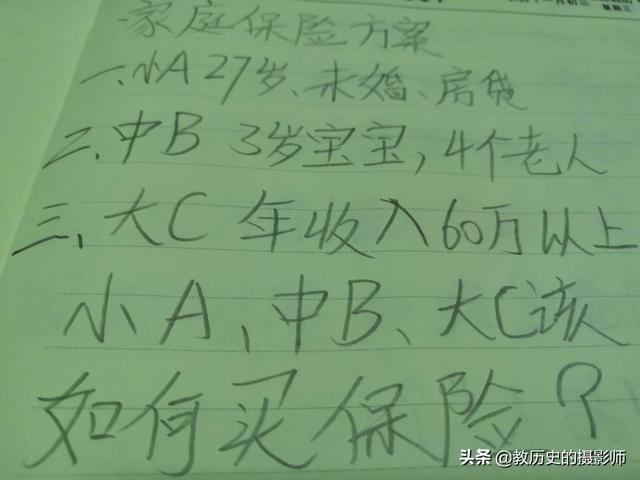 家庭保险方案
一、小A 27岁、未婚、房贷
二、中B 3岁宝宝，4个老人
三、大C 年收入60万以上
小A、中B、大C该
如何买保险？
头条 @教历史的摄影师